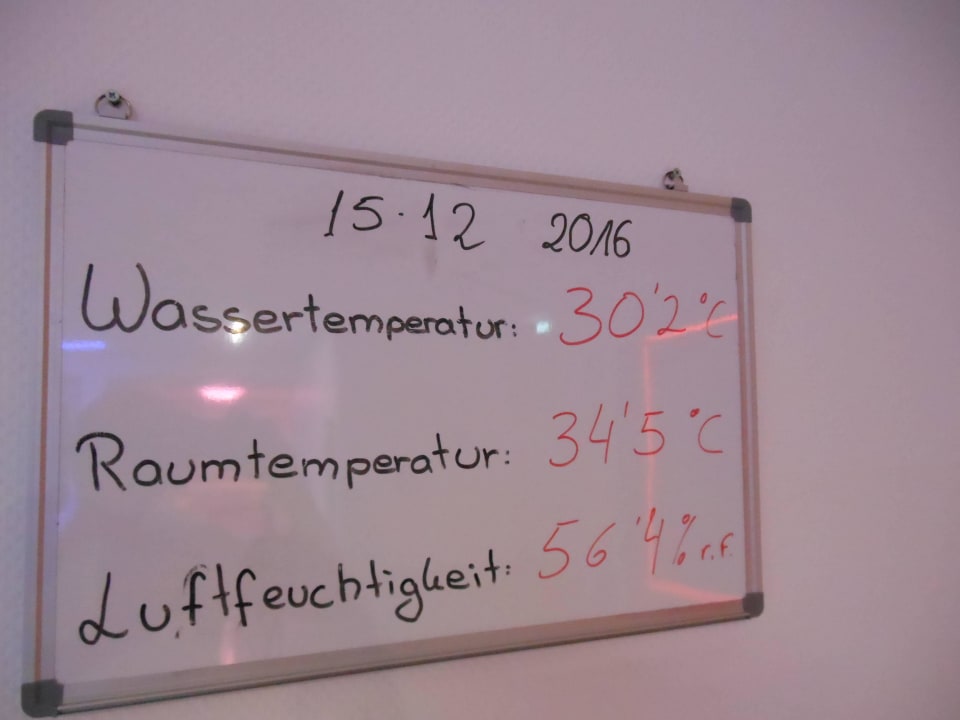 15.12 2016
Wassertemperatur: 30'2°C
Raumtemperatur: 34'5°C
Luftfeuchtigkeit: 56'4% r.f.